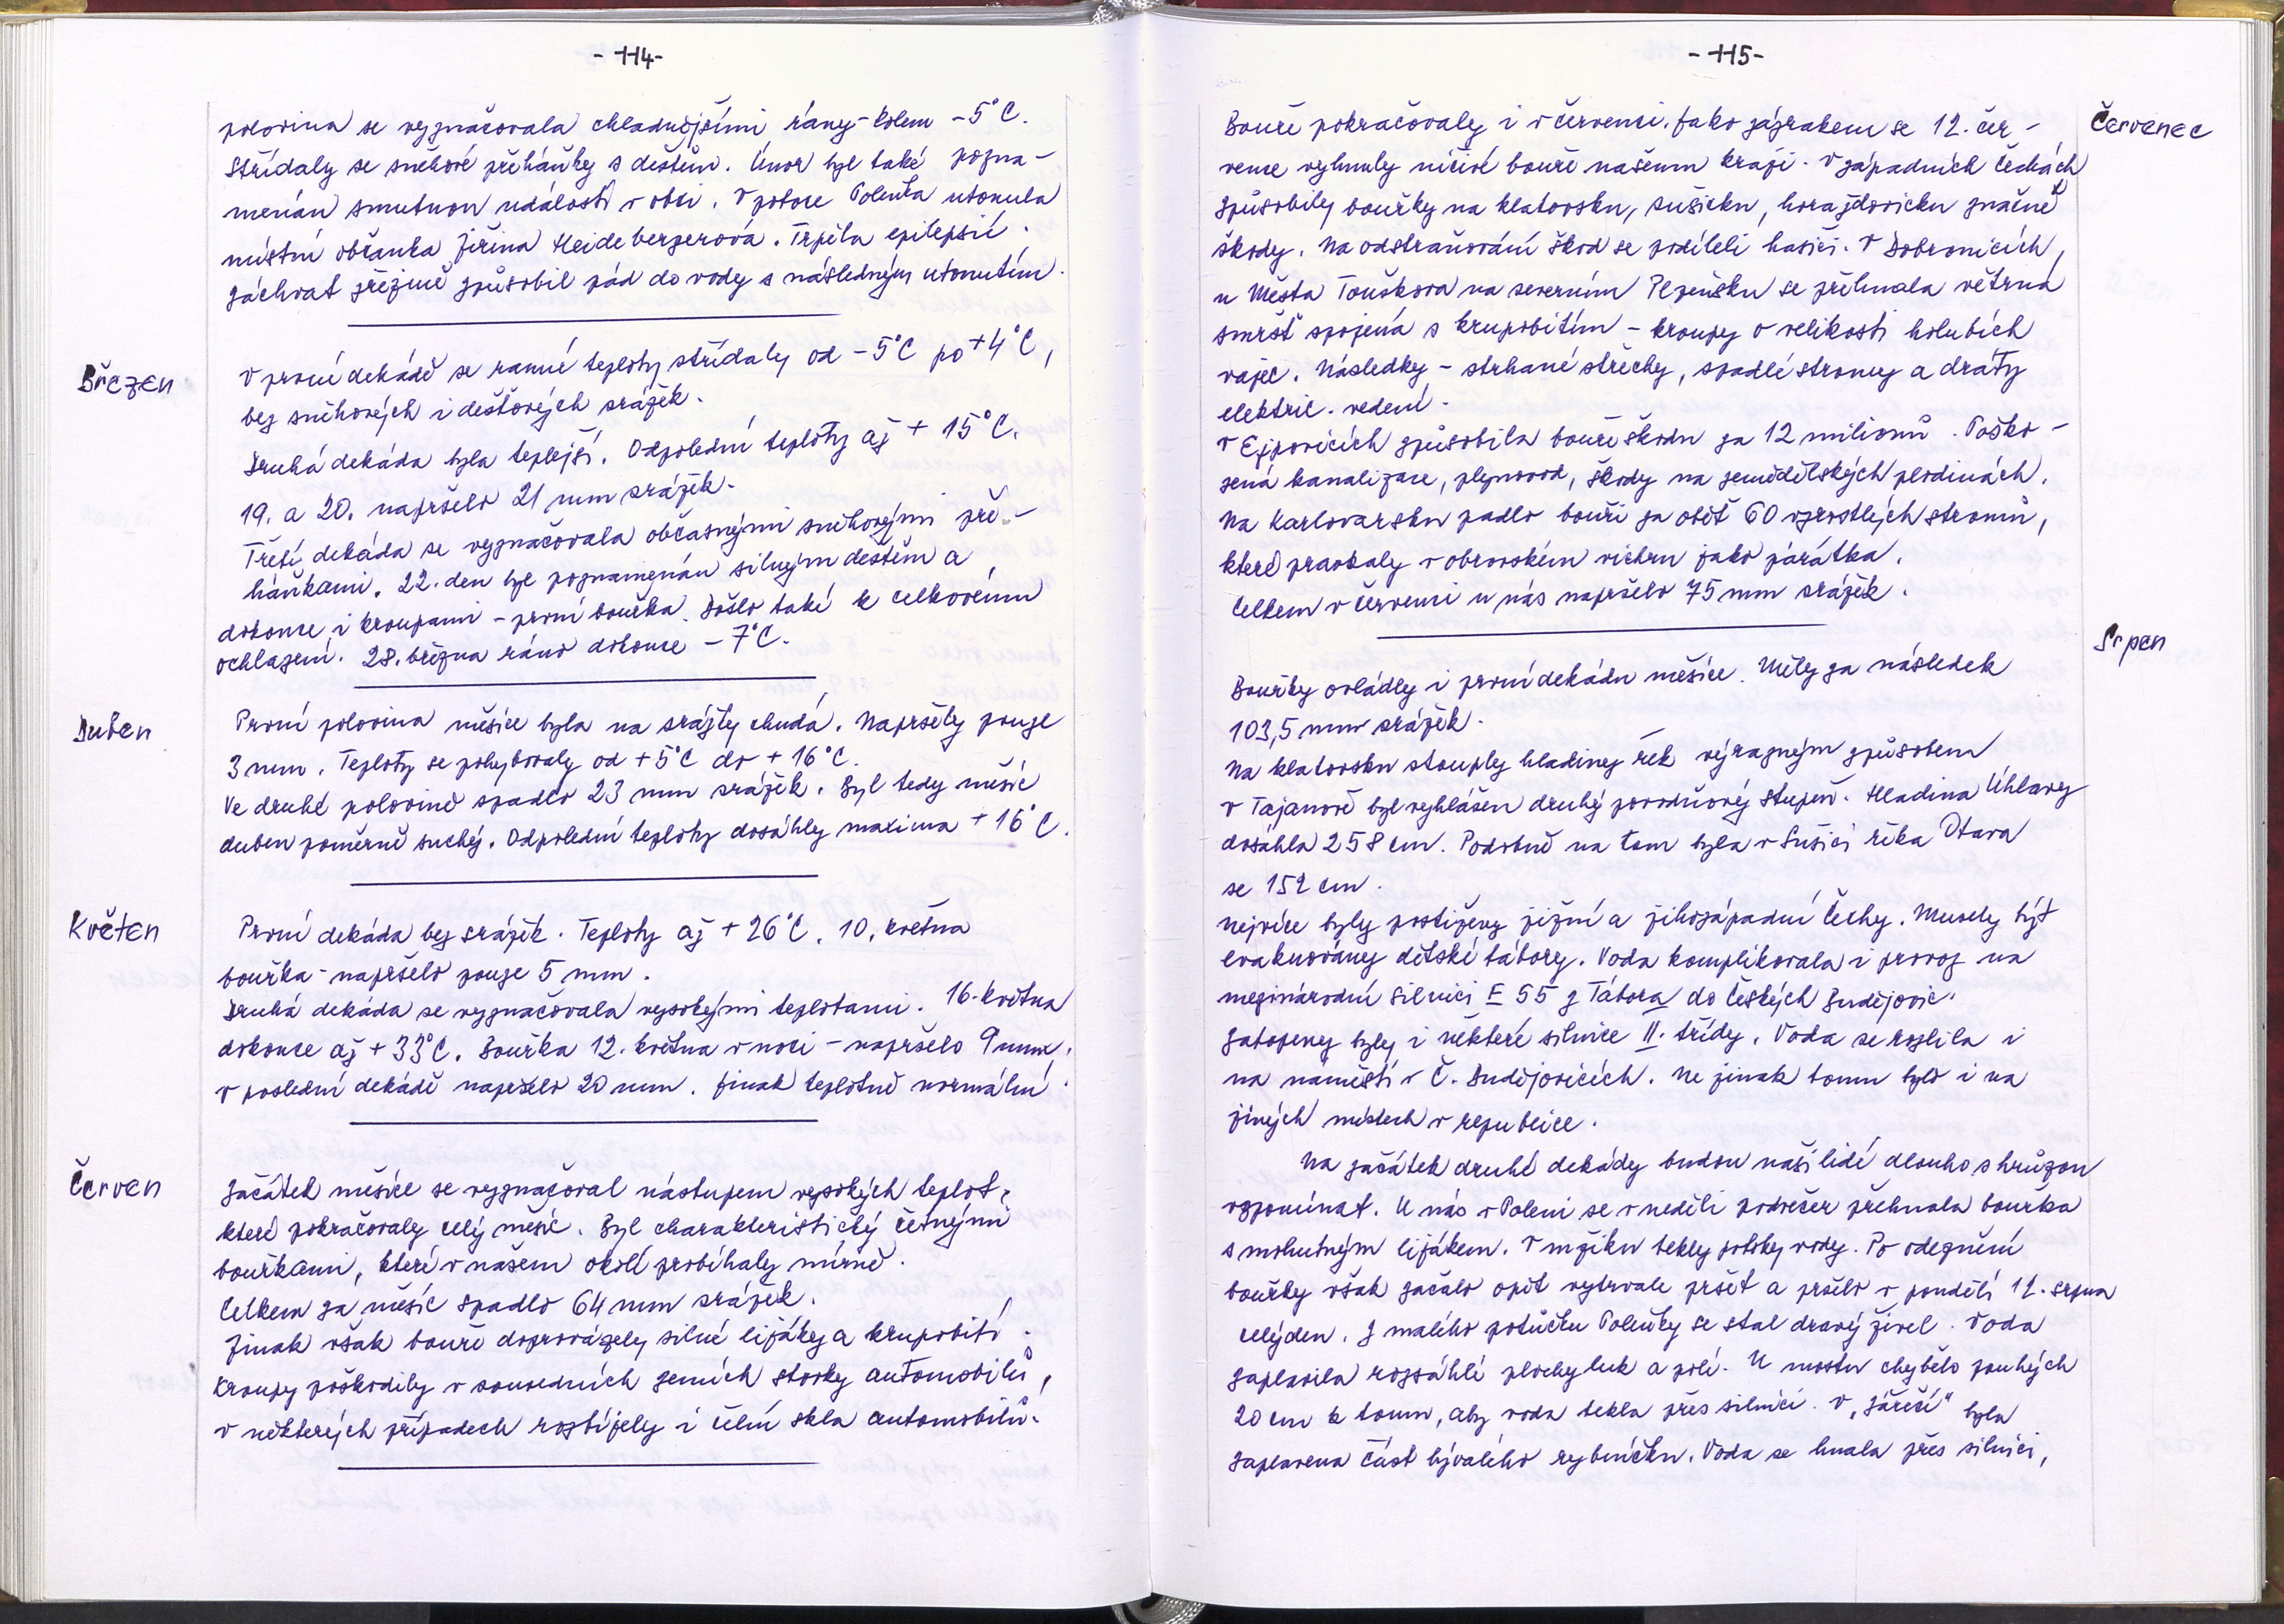 - 114 -
polovina se vyznačovala chladnějšími rány - kolem - 5°C.
Střídaly se sněhové přeháňky s deštěm. Únor byl také pozna -
menán smutnou událostí v obci. V potoce Poleňka utonula
místní občanka Jiřina Heidebergerová. Trpěla epilepsií.
Záchvat zřejmě způsobil pád do vody s následným utonutím.
Březen
V první dekádě se ranní teploty střídaly od - 5°C po + 4°C,
bez sněhových i dešťových srážek.
Druhá dekáda byla teplejší. Odpolední teploty až + 15°C.
19. a 20. napršelo 21 mm srážek.
Třetí dekáda se vyznačovala občasnými sněhovými pře -
háňkami. 22. den byl poznamenán silným deštěm a
dokonce i kroupami - první bouřka. Došlo také k celkovému
ochlazení. 28. března ráno dokonce - 7°C.
Duben
První polovina měsíce byla na srážky chudá. Napršely pouze
3 mm. Teploty se pohybovaly od + 5°C do + 16°C.
Ve druhé polovině spadlo 23 mm srážek. Byl tedy měsíc
duben poměrně suchý. Odpolední teploty dosáhly maxima + 16°C.
Květen
První dekáda bez srážek. Teploty až + 26°C. 10. května
bouřka - napršelo pouze 5 mm.
Druhá dekáda se vyznačovala vysokými teplotami. 16. května
dokonce až + 33°C. Bouřka 12. května v noci - napršelo 9 mm.
V poslední dekádě napršelo 20 mm. Jinak teplotně normální.
Červen
Začátek měsíce se vyznačoval nástupem vysokých teplot,
které pokračovaly celý měsíc. Byl charakteristický četnými
bouřkami, které v našem okolí probíhaly mírně.
Celkem za měsíc spadlo 64 mm srážek.
Jinak však bouře doprovázely silné lijáky a krupobití.
Kroupy poškodily v sousedních zemích stovky automobilů,
v některých případech rozbíjely i čelní skla automobilů.
- 115 -
Červenec
Bouře pokračovaly i v červenci. Jako zázrakem se 12. čer -
vence vyhnuly ničivé bouře našemu kraji. V západních Čechách
způsobily bouřky na klatovsku, sušicku, horažďovicku značné
škody. Na odstraňování škod se podíleli hasiči. V Dobronicích,
u Města Touškova na severním Plzeňsku se přehnala větrná
smršť spojená s krupobitím - kroupy o velikosti holubích
vajec. Následky - strhané střechy, spadlé stromy a dráty
elektric. vedení.
V Ejpovicích způsobila bouře škodu za 12 milionů. Poško -
zená kanalizace, plynovod, škody na zemědělských plodinách.
Na Karlovarsku padlo bouři za oběť 60 vzrostlých stromů,
které praskaly v obrovském vichru jako párátka.
Celkem v červenci u nás napršelo 75 mm srážek.
Srpen
Bouřky ovládly i první dekádu měsíce. Měly za následek
103,5 mm srážek.
Na klatovsku stouply hladiny řek výrazným způsobem
v Tajanově byl vyhlášen druhý povodňový stupeň. Hladina Úhlavy
dosáhla 258 cm. Podobně na tom byla v Sušici řeka Otava
se 152 cm.
Nejvíce byly postiženy jižní a jihozápadní Čechy. Musely být
evakuovány dětské tábory. Voda komplikovala i provoz na
mezinárodní silnici E 55 z Tábora do Českých Budějovic.
Zatopeny byly i některé silnice II. třídy. Voda se rozlila i
na náměstí v Č. Budějovicích. Ne jinak tomu bylo i na
jiných místech v republice.
Na začátek druhé dekády budou naši lidé dlouho s hrůzou
vzpomínat. U nás v Poleni se v neděli podvečer přehnala bouřka
s mohutným lijákem. V mžiku tekly potoky vody. Po odeznění
bouřky však začalo opět vytrvale pršet a pršelo v pondělí 12. srpna
celý den. Z malého potůčku Poleňky se stal dravý živel. Voda
zaplavila rozsáhlé plochy luk a polí. U mostu chybělo pouhých
20 cm k tomu, aby voda tekla přes silnici. V „Zářečí" byla
zaplavena část bývalého rybníčku. Voda se hnala přes silnici,